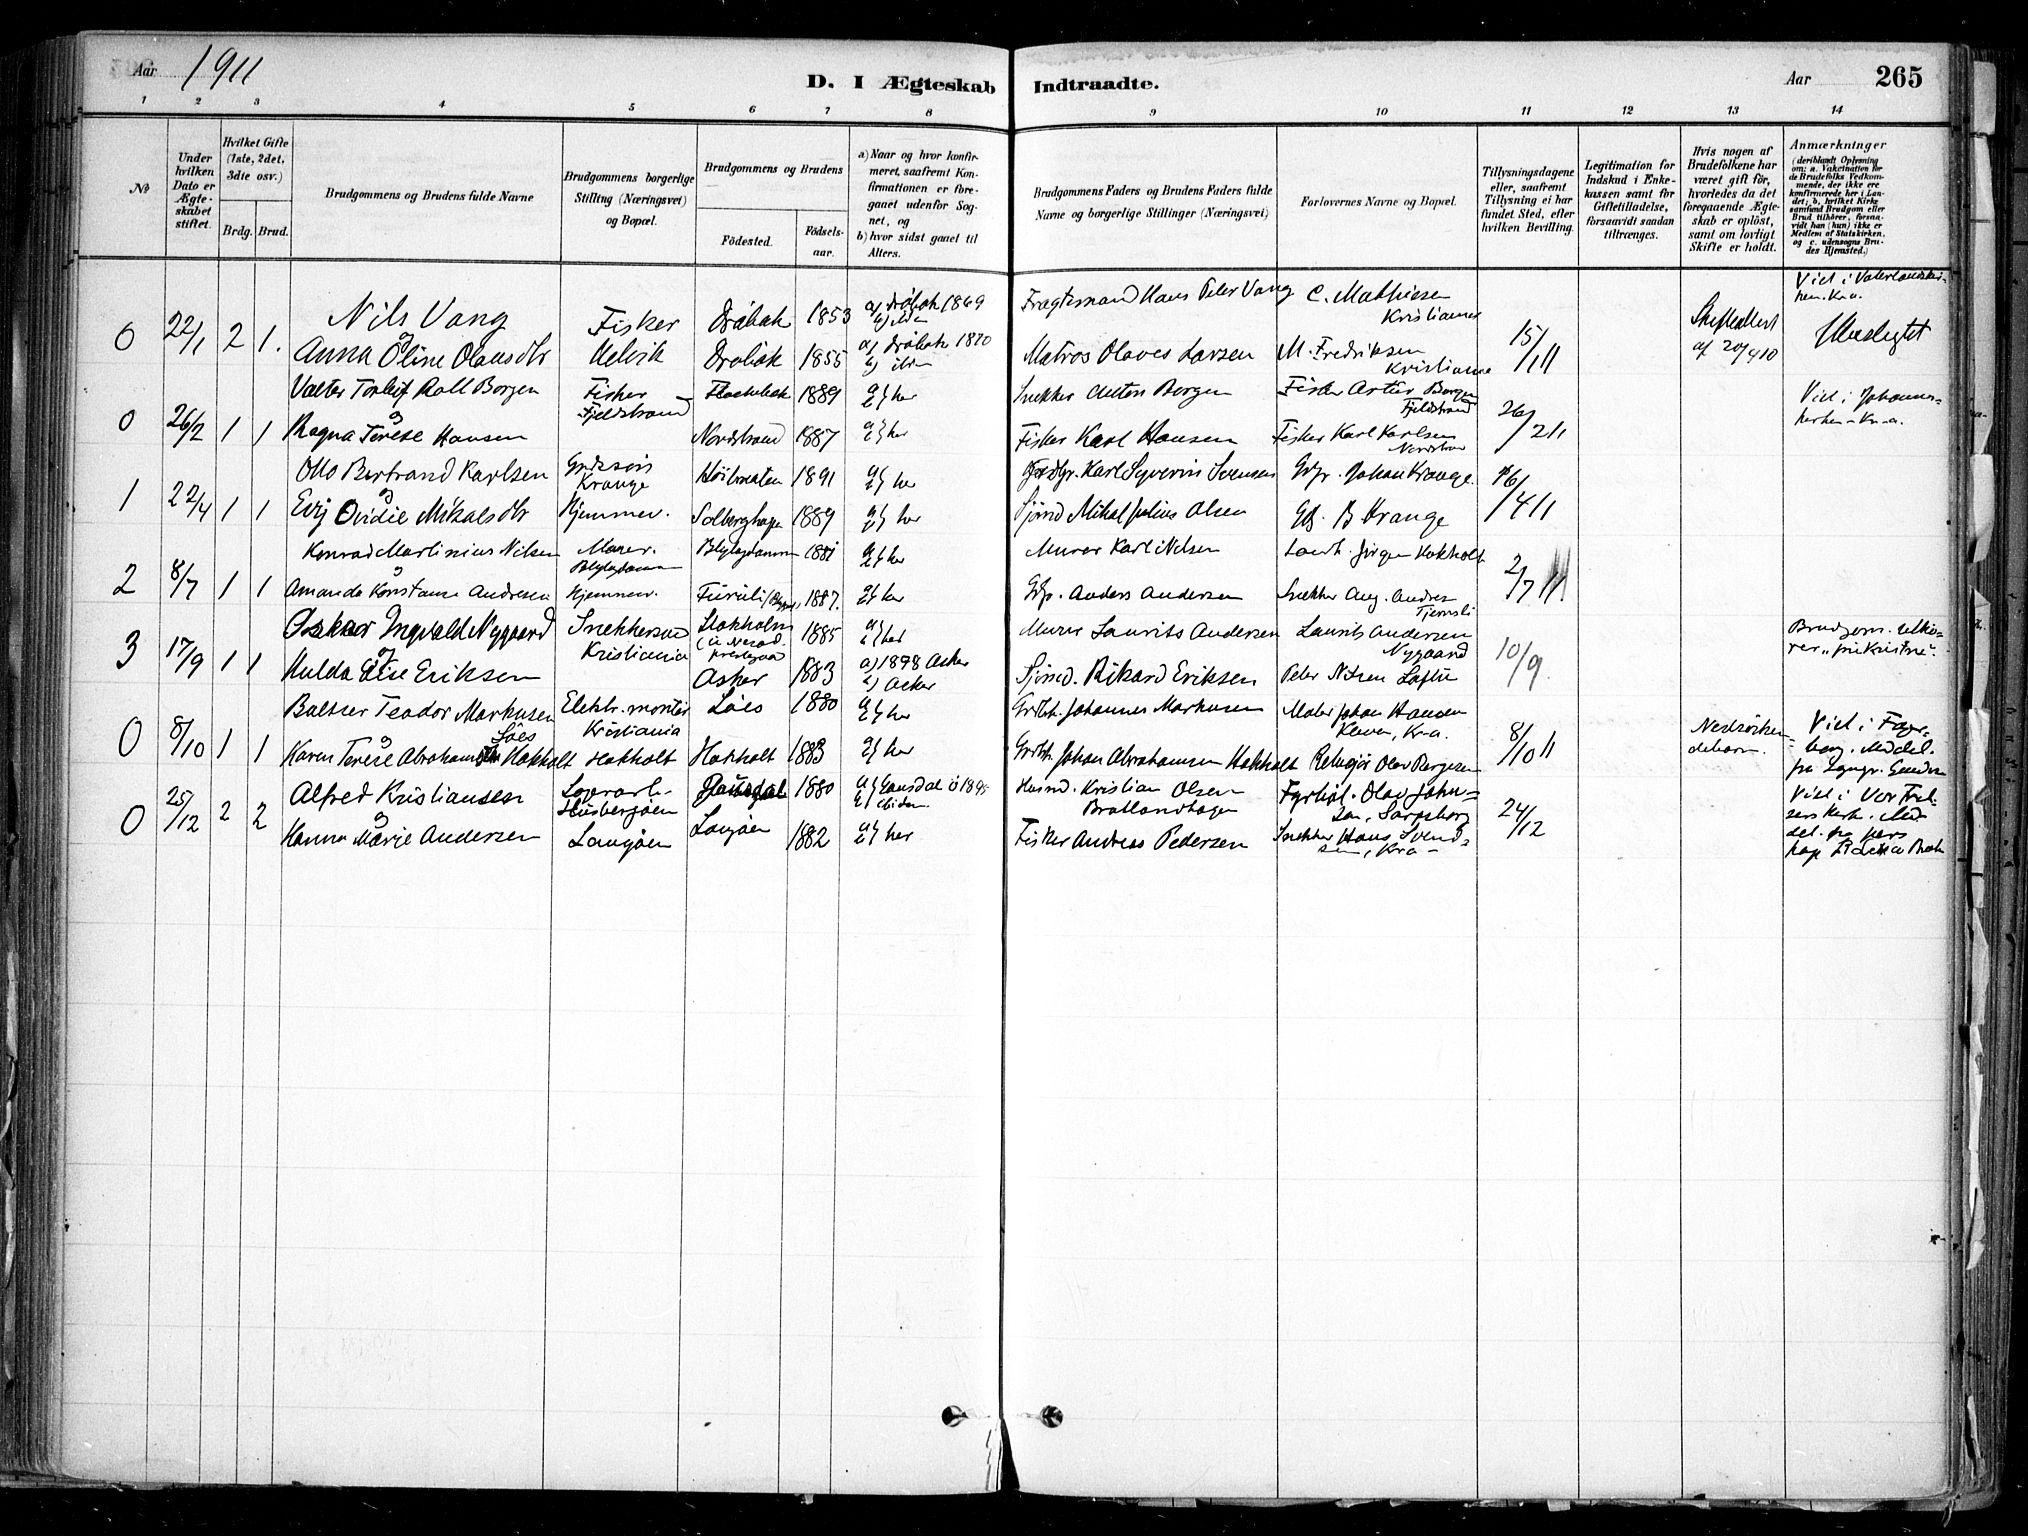 Aar 1911
D. I Ægteskab Indtraadte.
Aar 265
1 2 3 4 5 6 7 8 9 10 11 12 13 14
No
Under hvilken Dato er Ægteskabet stiftet.
Hvilket Gifte (1ste, 2det, 3die osv.)
Brdg. Brud.
Brudgommens og Brudens fulde Navne
Brudgommens borgerlige Stilling (Næringsvei) og Bopæl.
Brudgommens og Brudens
Fødested. Fødselsaar.
a) Naar og hvor konfirmeret, saafremt Konfirmationen er foregaaet udenfor Sognet, og
b) hvor sidst gaaet til Alters.
Brudgommens Faders og Brudens Faders fulde Navne og borgerlige Stillinger (Næringsvei)
Forlovernes Navne og Bopæl.
Tillysningsdagene eller, saafremt Tillysning ei har fundet Sted, efter hvilken Bevilling.
Legitimation for Indskud i Enkekassen samt for Giftetilladelse, forsaavidt saadan tiltrænges.
Hvis nogen af Brudefolkene har været gift før, hvorledes da det foregaaende Ægteskab er opløst, samt om lovligt Skifte er holdt.
Anmærkninger (deriblandt Oplysning om: a. Vakcination for de Brudefolks Vedkommende, der ikke ere konfirmerede her i Landet; b. hvilket Kirkesamfund Brudgom eller Brud tilhører, forsaavidt han (hun) ikke er Medlem af Statskirken, og c. udensogns Brudes Hjemsted.)
0 22/1 2 1. Nils Vang Fisker Drøbak 1853 a) Drøbak 1869 Fragtemand Hans Peter Vang C. Mathiesen Kristiania 15/1 11 Skifteattest af 20/4 10 Viet i Vaterlandskirken. Kr.a. Ubeslegtet
& Anna Oline Olausdtr Drøbak 1855 a) Drøbak 1870 Matros Olaves Larsen M. Fredriksen Kristiania
0 26/2 1 1 Valter Torleif Rall Borgen Fisker Fjeldstrand 1889 a} b} her Snekker Anton Borgen Fisker Artur Borgen Fjeldstrand 26/2 11 Viet i Johannes=kirken - Kr.a.
& Ragna Terese Hansen Nordstrand 1887 a} b} her Fisker Karl Hansen Fisker Karl Karlsen Nordstran
1 22/4 1 1 Otto Bertrand Karlsen Krange 1891 a} b} her Karl Syverin Svensen Johan Krange. 16/4 11
& Evij Ovidie Mikalsdtr Hjemmev. Solberghagen 1889 a} b} her Sjømd Mikal Julius Olsen B Krange
2 8/7 1 1 Konrad Martinius Nilsen Murer. 1881 a} b} her Murer Karl Nilsen Jørgen Kokholt 2/7 11.
& Amanda Konstanse Andresen Hjemmev. Furuli 1887. a} b} her Anders Andersen Snekker Aug. Andresen Tjernsli
3 17/9 1 1 Oskar Ingvald Nygaard Snekkersv. Kristiania Stokholm 1885 a} b} her Murer Laurits Andersen Laurits Andersen Nygaard 10/9. Brudgom. "frikristne".
& Hulda Elise Eriksen Asker 1883 a) 1898 Asker b) Asker Sjømd. Rikard Eriksen Peter Nilsen
0 8/10 1 1 Baltser Teodor Markusen Løes Elektr. montør Kristiania Løes 1880 a} b} her Johannes Markusen Maler Johan Hansen Kr.a. 8/10 11 Viet i Fagerborg. Meddel. fra
& Karen Terese Abrahamsdtr Hokholt Hokholt Hokholt 1883 a} b} her Johan Abrahamsen Hokholt Olav Børgesen
0 25/12 2 2 Alfred Kristiansen 1880 1895 Husmd. Kristian Olsen Bratlandhagen Olav Johnsen, Sarpsborg 24/12 Viet i Vor Frelsers Kirk. Meddel. fra
Hanna Marie Andersen Langøen Langøen 1882 a} b} her Fisker Andreas Pedersen Snekker Hans Svendsen, Kra